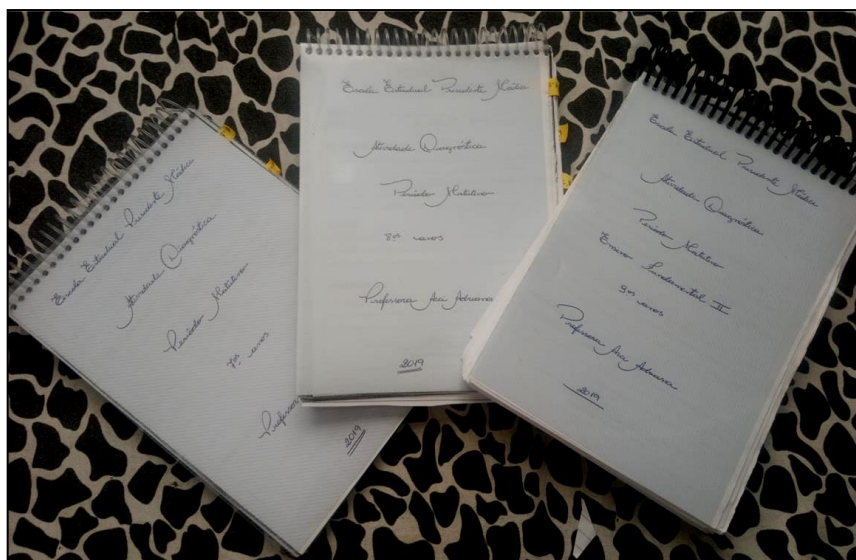 Escola Estadual Presidente Médici
Atividade Diagnóstica
Período Matutino
7ºs anos
Professor
2019
Escola Estadual Presidente Médici
Atividade Diagnóstica
Período Matutino
8ºs anos
Professora Ana Adriana
2019
Escola Estadual Presidente Médici
Atividade Diagnóstica
Período Matutino
Ensino Fundamental II
9ºs anos
Professora Ana Adriana
2019